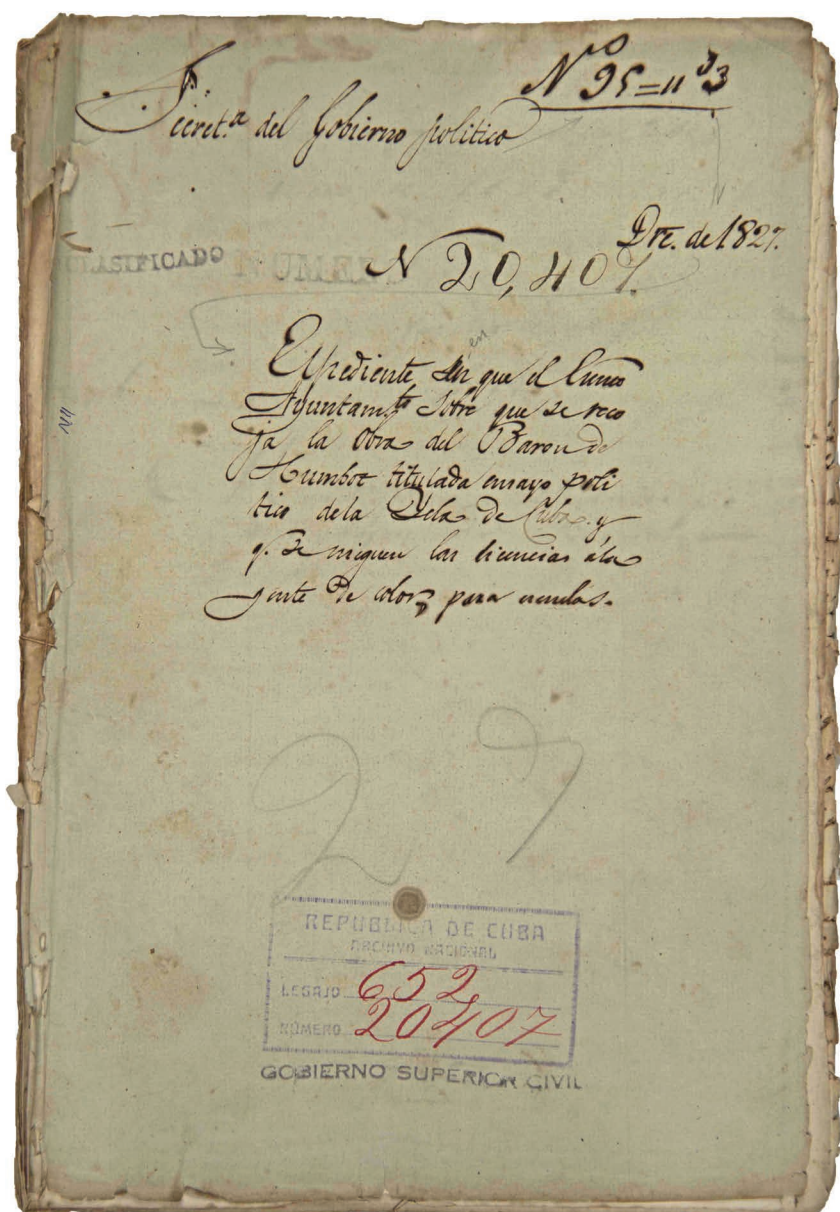 Nº 95=11 33
Secret.a del Gobierno politico
Dre. de 1827.
CLASIFICADO NUMERO
N 20,407.
en
Expediente en que el Exmo
Ayuntamto sobre que se reco
ja la Obra del Baron de
Humbot titulada ensayo poli
tico dela Isla de Cuba y
q. se nieguen las licencias ála
gente de color para escuelas.
27
REPUBLICA DE CUBA
ARCHIVO NACIONAL
LEGAJO 652
NÚMERO 20407
GOBIERNO SUPERIOR CIVIL